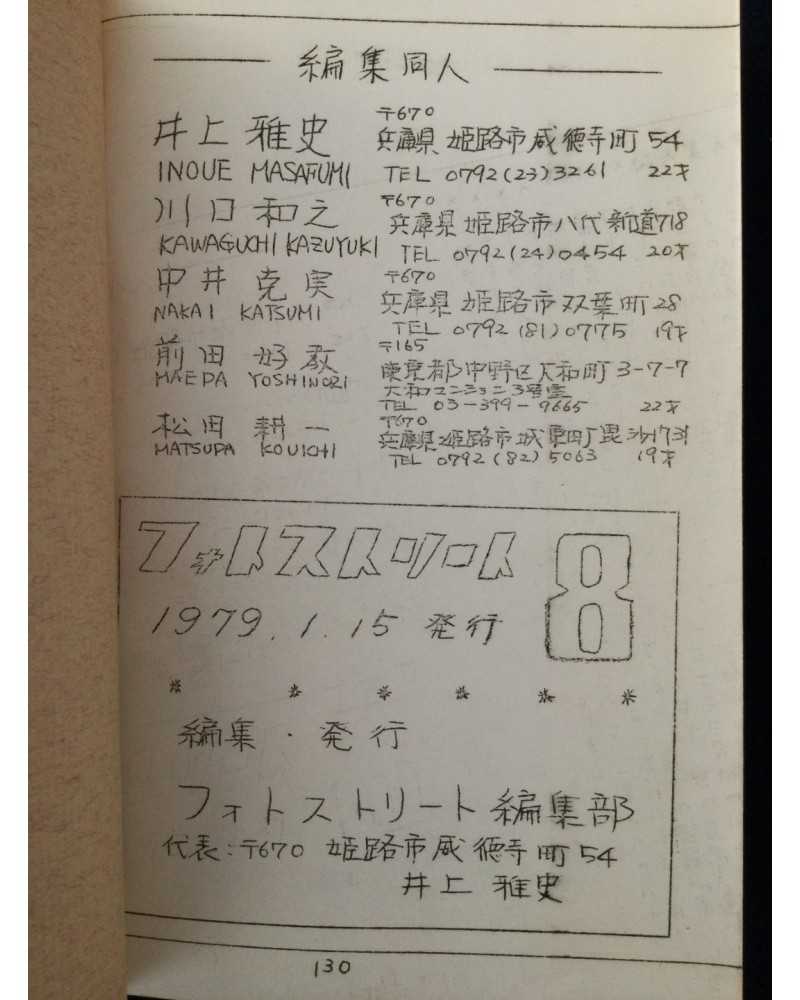 編集同人
井上 雅史
〒670
兵庫県 姫路市威徳寺町 54
INOUE MASAFUMI
TEL 0792(23)3261 22才
川口 和之
〒670
兵庫県 姫路市八代新道718
KAWAGUCHI KAZUYUKI
TEL 0792(24)0454 20才
中井 克実
〒670
兵庫県 姫路市双葉町 28
NAKAI KATSUMI
TEL 0792(81)0775 19才
前田 好教
〒165
東京都中野区大和町 3-7-7
MAEDA YOSHINORI
大和マンション3号室
TEL 03-399-9665 22才
松田 耕一
〒670
兵庫県姫路市城東町毘沙門
MATSUDA KOUICHI
TEL 0792(82)5063 19才
フォトストリート 8
1979.1.15 発行
* * * * * *
編集・発行
フォトストリート編集部
代表:〒670 姫路市威徳寺町 54
井上 雅史
130